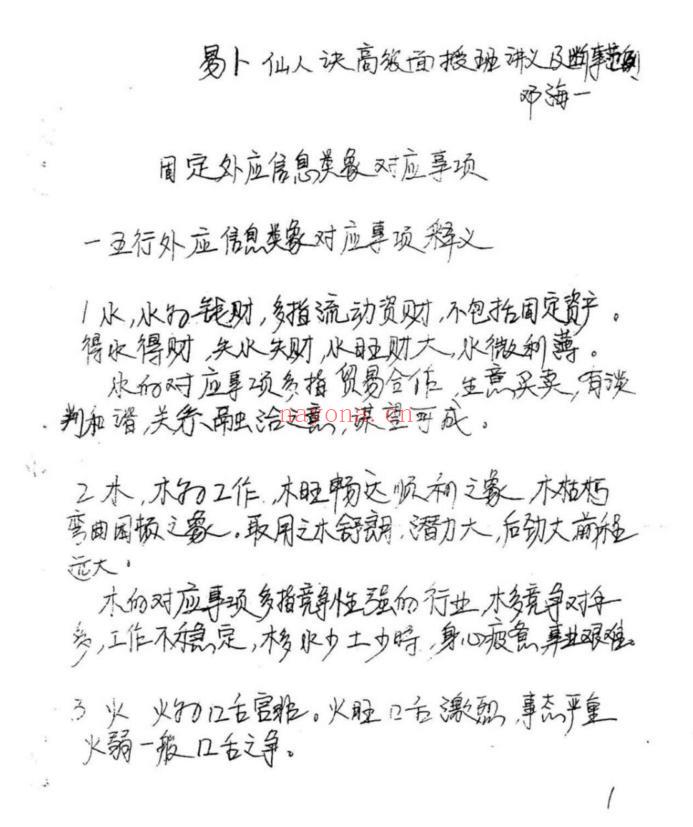 易卜仙人诀高级面授班讲义及断事范例
邓海一
固定外应信息类象对应事项
一五行外应信息类象对应事项释义
1水,水为钱财,多指流动资财,不包括固定资产。
得水得财,失水失财,水旺财大,水微利薄。
水的对应事项多指贸易合作,生意买卖,有谈
判和谐,关系融洽之意,谋望可成。
nayona.cn
2木,木为工作,木旺畅达顺利之象,木枯朽
弯曲困顿之象。取用之木舒朗,潜力大,后劲大前程
远大。
木的对应事项多指竞争性强的行业,木多竞争对手
多,工作不稳定,木多水少土少时,身心疲惫事业艰难。
3火 火为口舌官非。火旺口舌激烈,事态严重
火弱一般口舌之争。
1